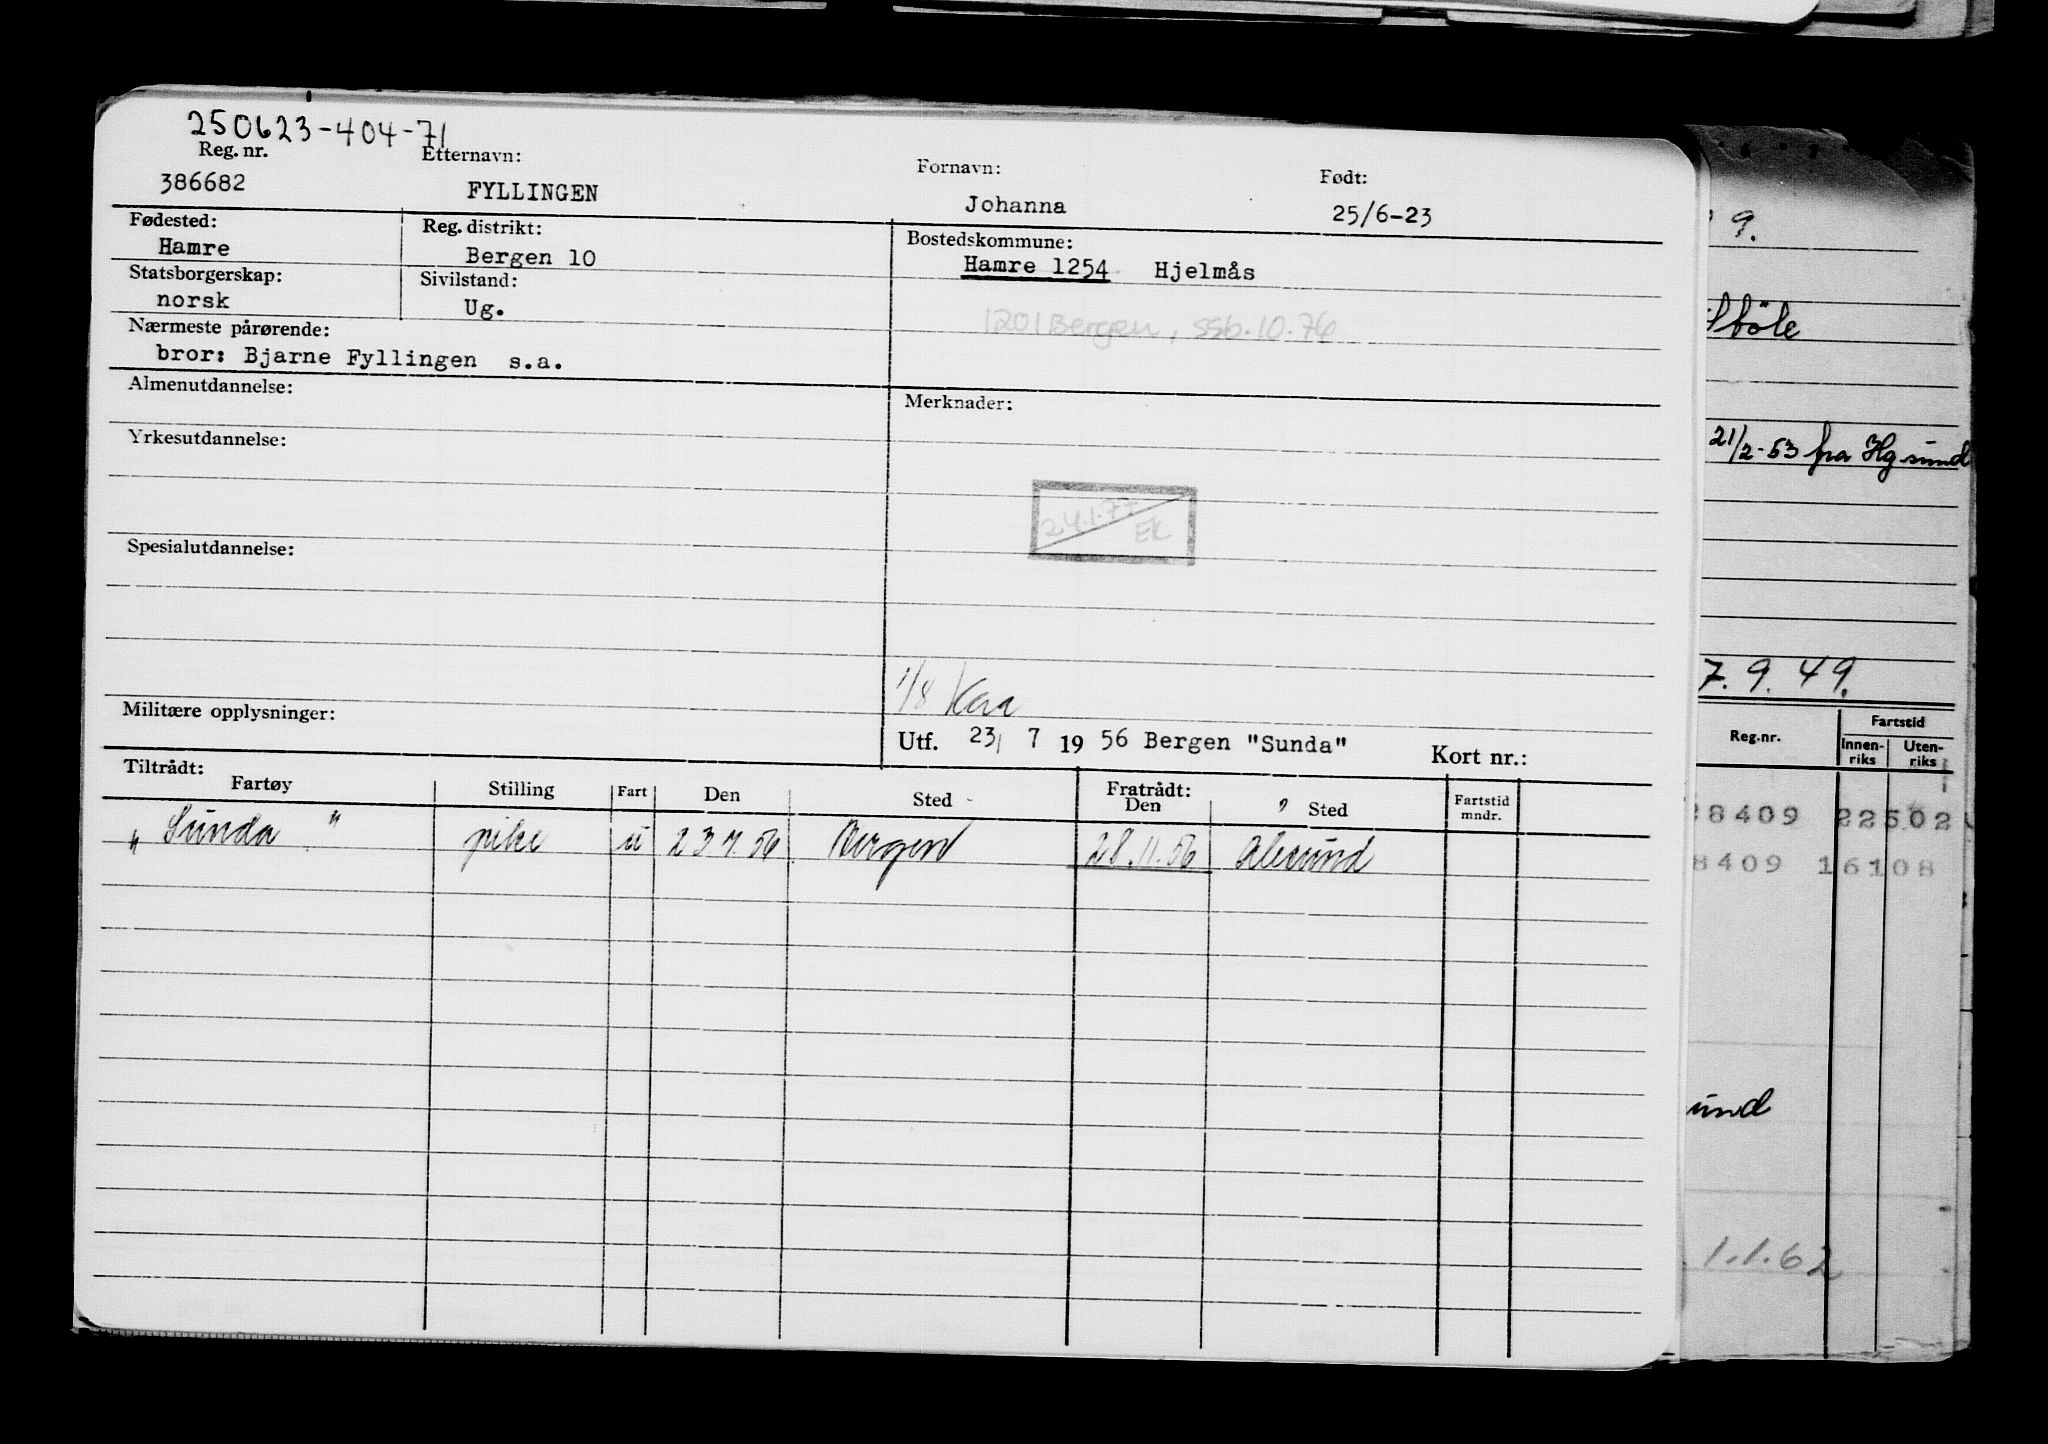 250623-404-71
Reg. nr. Etternavn: Fornavn: Født:
386682 FYLLINGEN Johanna 25/6-23
Fødested: Reg. distrikt: Bostedskommune:
Hamre Bergen 10 Hamre 1254 Hjelmås
Statsborgerskap: Sivilstand:
norsk Ug.
1201 Bergen, ssb. 10.76
Nærmeste pårørende:
bror: Bjarne Fyllingen s.a.
Almenutdannelse: Merknader:
Yrkesutdannelse:
24.1.77 EK
Spesialutdannelse:
1/8
Militære opplysninger:
Utf. 23/ 7 19 56 Bergen "Sunda" Kort nr.:
Tiltrådt: Fratrådt:
Fartøy Stilling Fart Den Sted Den Sted Fartstid mndr.
„ Sunda " pike u 23 7. 56 Bergen 28.11.56 Alesund
9.
21/2-53 fra Hgsund
7.9.49.
Reg.nr. Fartstid
Innen-riks Uten-riks
8409 22502
8409 16108
und
1.1.62